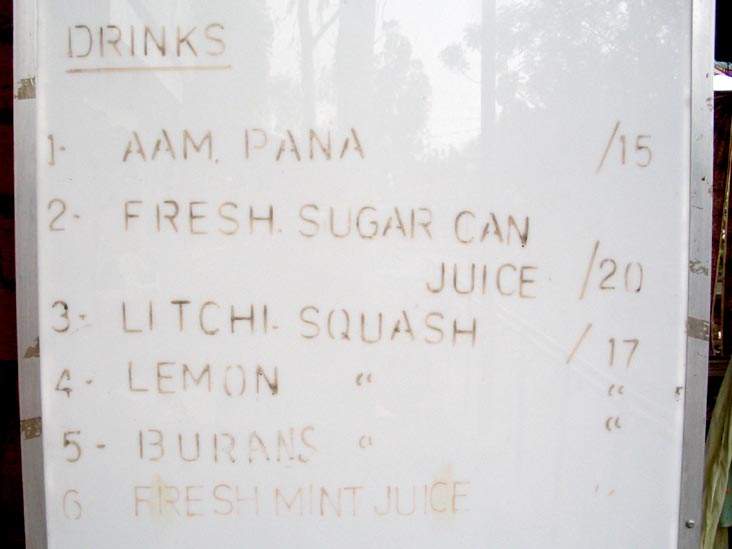 DRINKS
1- AAM. PANA /15
2- FRESH. SUGAR CAN
JUICE /20
3- LITCHI- SQUASH /17
4- LEMON " "
5- BURANS " "
6 FRESH MINT JUICE "